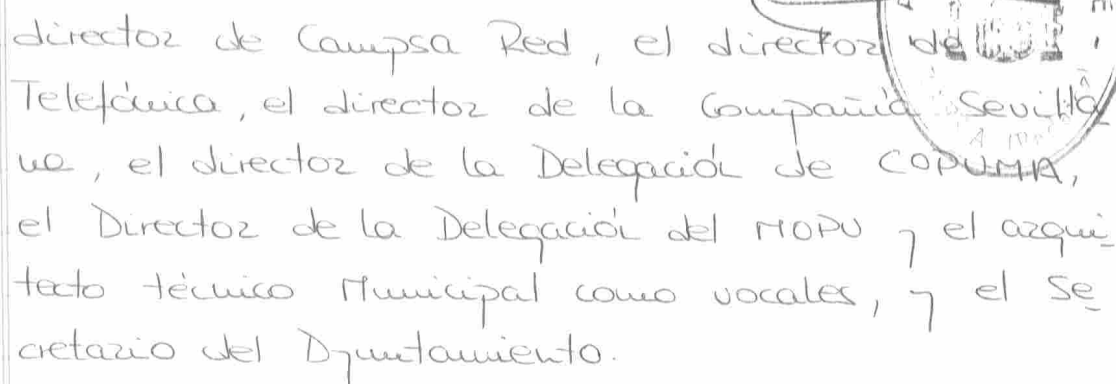 director de Campsa Red, el director de
Telefónica, el director de la Compañía Sevilla
na, el director de la Delegación de COPUMA,
el Director de la Delegación del MOPU y el arqui
tecto técnico Municipal como vocales, y el Se
cretario del Ayuntamiento.